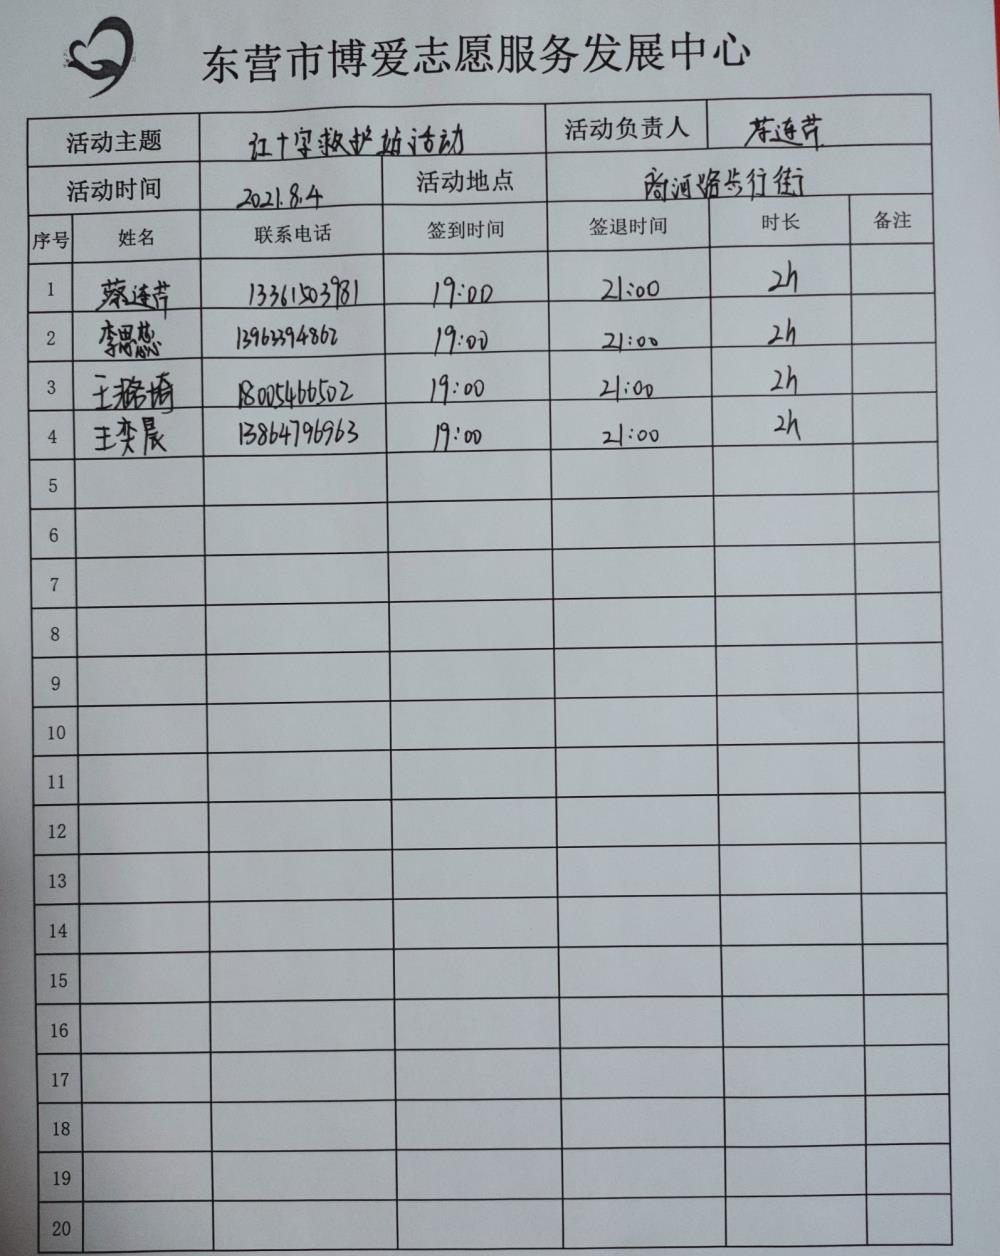 东营市博爱志愿服务发展中心
活动主题 红十字救护站活动 活动负责人 蔡连芹
活动时间 2021.8.4 活动地点 商河路步行街
序号 姓名 联系电话 签到时间 签退时间 时长 备注
1 蔡连芹 13361503981 19:00 21:00 2h
2 李思慈 13963394862 19:00 21:00 2h
3 王 18005466502 19:00 21:00 2h
4 王奕晨 13864796963 19:00 21:00 2h
5
6
7
8
9
10
11
12
13
14
15
16
17
18
19
20